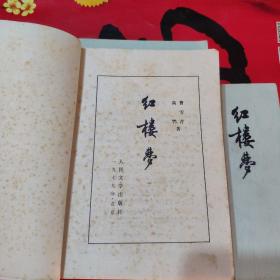 曹雪芹
高鹗 著
红楼梦
人民文学出版社
一九七九年·北京
红楼梦